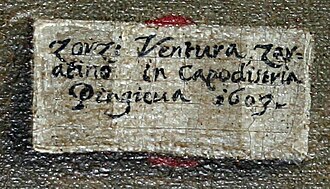 Zorzi Ventura, Zar-
atino in Capodistria
Pingieua 1603.